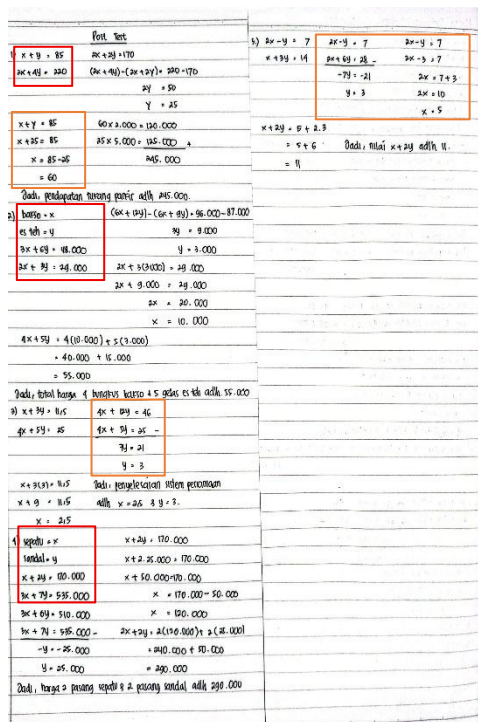 Post Test
1) x + y = 85
2x + 4y = 220
2x + 2y = 170
(2x + 4y) - (2x + 2y) = 220 - 170
2y = 50
y = 25
x + y = 85
x + 25 = 85
x = 85 - 25
= 60
60 x 2.000 = 120.000
25 x 5.000 = 125.000 +
245.000
Jadi, pendapatan tukang parkir adlh 245.000.
2) bakso = x
es teh = y
3x + 6y = 48.000
2x + 3y = 29.000
(6x + 12y) - (6x + 9y) = 96.000 - 87.000
3y = 9.000
y = 3.000
2x + 3(3.000) = 29.000
2x + 9.000 = 29.000
2x = 20.000
x = 10.000
4x + 5y = 4(10.000) + 5(3.000)
= 40.000 + 15.000
= 55.000
Jadi, total harga 4 bungkus bakso & 5 gelas es teh adlh 55.000
3) x + 3y = 11,5
4x + 5y = 25
4x + 12y = 46
4x + 5y = 25 -
7y = 21
y = 3
x + 3(3) = 11,5
x + 9 = 11,5
x = 2,5
Jadi, penyelesaian sistem persamaan
adlh x = 2,5 & y = 3.
4) sepatu = x
sandal = y
x + 2y = 170.000
3x + 7y = 535.000
3x + 6y = 510.000
3x + 7y = 535.000 -
-y = -25.000
y = 25.000
x + 2y = 170.000
x + 2.25.000 = 170.000
x + 50.000 = 170.000
x = 170.000 - 50.000
x = 120.000
2x + 2y = 2(120.000) + 2(25.000)
= 240.000 + 50.000
= 290.000
Jadi, harga 2 pasang sepatu & 2 pasang sandal adlh 290.000
5) 2x - y = 7
x + 3y = 14
2x - y = 7
2x + 6y = 28 -
-7y = -21
y = 3
2x - y = 7
2x - 3 = 7
2x = 7 + 3
2x = 10
x = 5
x + 2y = 5 + 2.3
= 5 + 6
= 11
Jadi, nilai x + 2y adlh 11.